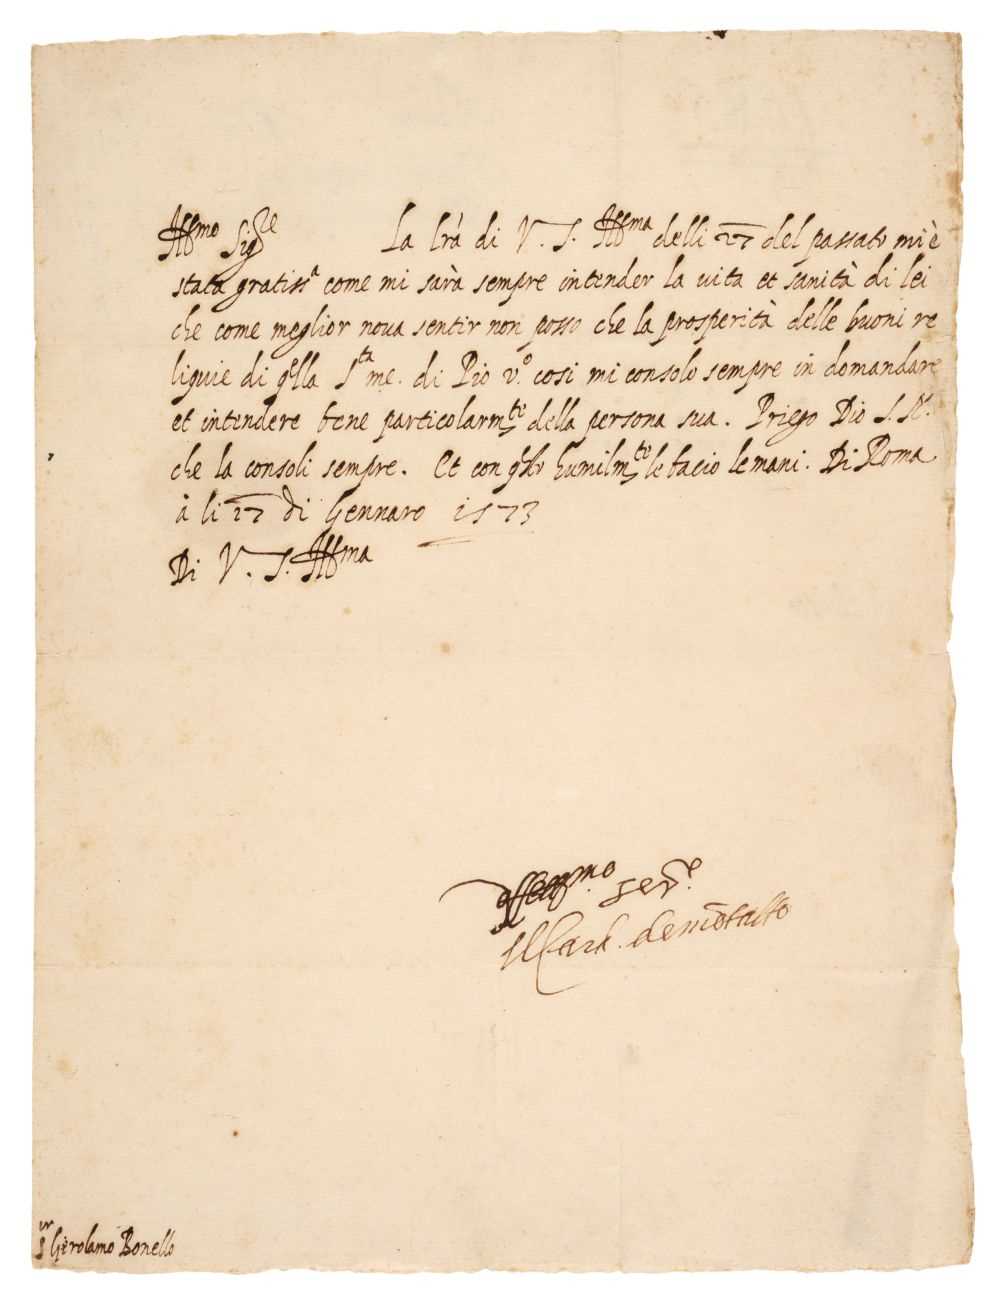 Ill.mo Sig.re La l'ra di V. S. Ill.ma delli 27 del passato mi è
stata gratiss.a come mi sarà sempre intender la vita et sanità di lei
che come meglior nova sentir non posso che la prosperità delle buoni re
liquie di q'lla S.ta me. di Pio v.o cosi mi consolo sempre in domandare
et intendere bene particolarm.te della persona sua. Priego Dio S. N.
che la consoli sempre. Et con q'sto humilm.te le bacio le mani. Di Roma
à li 27 di Gennaro 1573
Di V. S. Ill.ma
ser.re
Il Card. de mõtalto
S.or Gierolamo Bonello